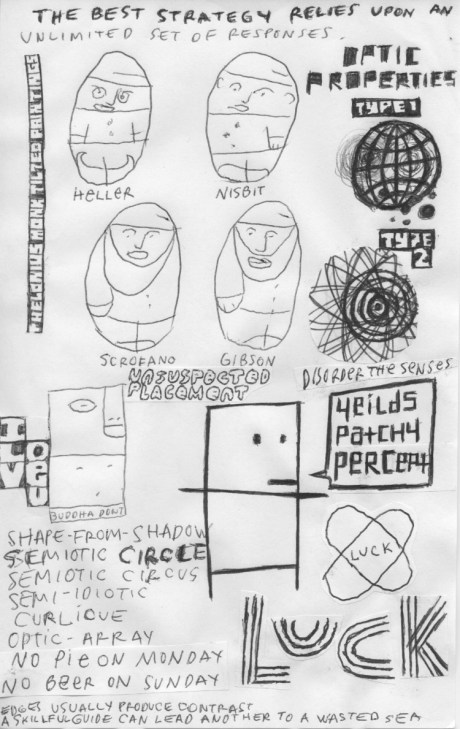 THE BEST STRATEGY RELIES UPON AN
UNLIMITED SET OF RESPONSES.
THELONIUS MONK TILTED PAINTING
HELLER
NISBIT
OPTIC
PROPERTIES
TYPE 1
TYPE
2
SCROFANO
GIBSON
DISORDER THE SENSES
UNSUSPECTED
PLACEMENT
YEILDS
PATCHY
PERCEPT
BUDDHA DONT
SHAPE-FROM-SHADOW
SEMIOTIC CIRCLE
SEMIOTIC CIRCUS
SEMI-IDIOTIC
CURLICUE
OPTIC-ARRAY
NO PIE ON MONDAY
NO BEER ON SUNDAY
LUCK
LUCK
EDGES USUALLY PRODUCE CONTRAST
A SKILLFUL GUIDE CAN LEAD ANOTHER TO A WASTED SEA